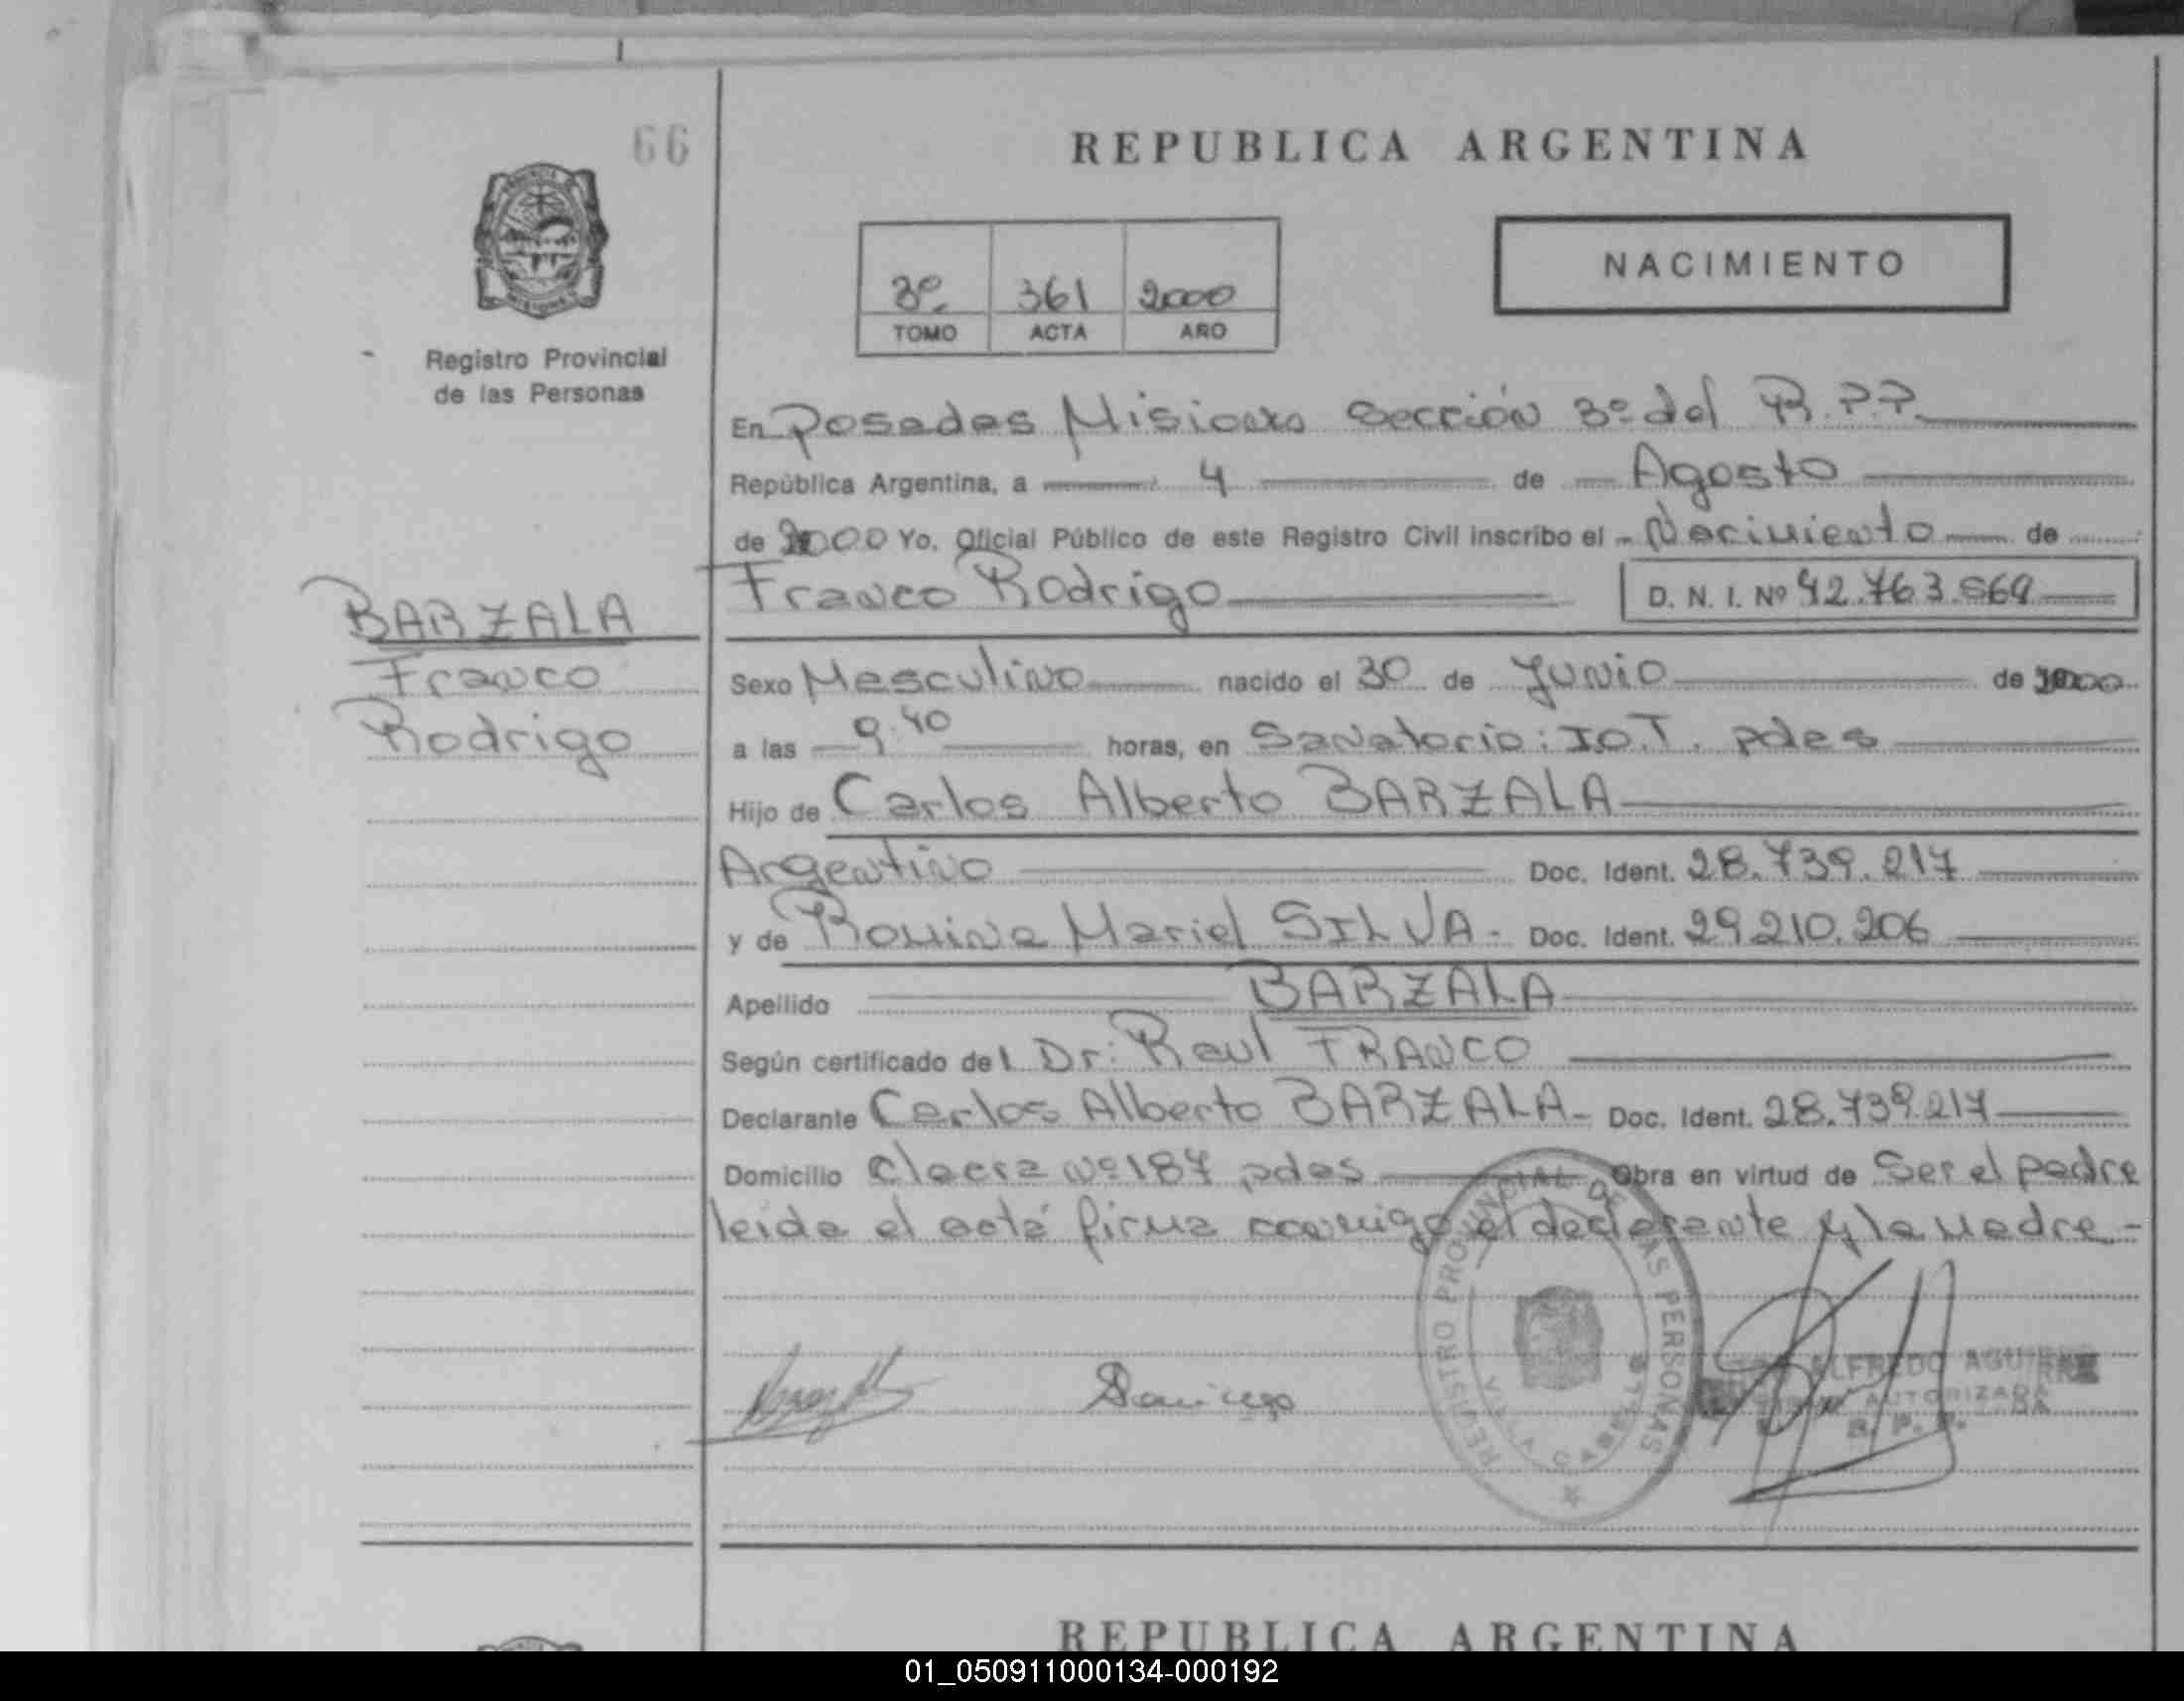 66
REPUBLICA ARGENTINA
NACIMIENTO
3º 361 2000
TOMO ACTA AÑO
Registro Provincial
de las Personas
En Posadas Misiones Sección 3º del R.P.P.
República Argentina, a 4 de Agosto
de 2000 Yo, Oficial Público de este Registro Civil inscribo el Nacimiento de
Franco Rodrigo D. N. I. Nº 42.763.569
BARZALA
Franco
Rodrigo
Sexo Masculino nacido el 30 de Junio de 2000
a las 9.40 horas, en Sanatorio: I.O.T. pdas
Hijo de Carlos Alberto BARZALA
Argentino Doc. Ident. 28.739.217
y de Romina Mariel SILVA. Doc. Ident. 29.210.206
Apellido BARZALA
Según certificado del Dr: Raul FRANCO
Declarante Carlos Alberto BARZALA Doc. Ident. 28.739.217
Domicilio Nº 187 pdas Obra en virtud de Ser el padre
leida el acta firma conmigo el declarante y la madre
REGISTRO PROVINCIAL DE LAS PERSONAS
VILLA CABELLO
ALFREDO AGUIRRE
AUTORIZADA
R. P. P.
REPUBLICA ARGENTINA
01_050911000134-000192